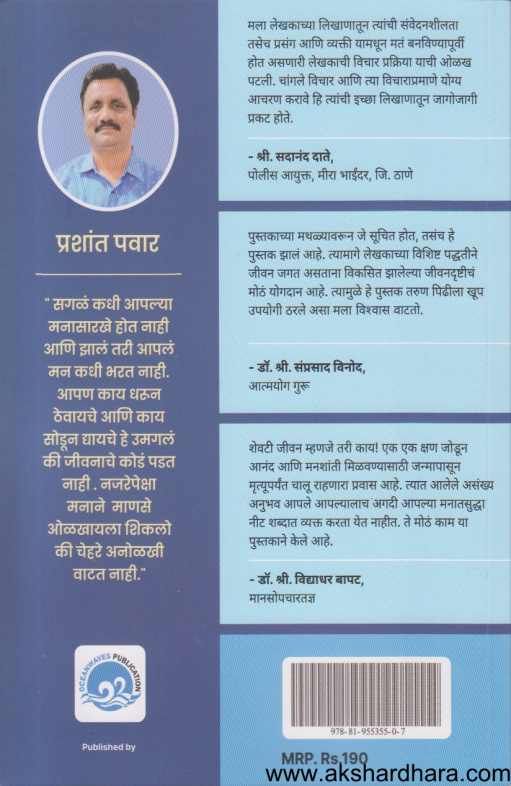 प्रशांत पवार
" सगळं कधी आपल्या
मनासारखे होत नाही
आणि झालं तरी आपलं
मन कधी भरत नाही.
आपण काय धरून
ठेवायचे आणि काय
सोडून द्यायचे हे उमगलं
की जीवनाचे कोडं पडत
नाही . नजरेपेक्षा
मनाने माणसे
ओळखायला शिकलो
की चेहरे अनोळखी
वाटत नाही."
OCEANWAVES PUBLICATION
Published by
मला लेखकाच्या लिखाणातून त्यांची संवेदनशीलता
तसेच प्रसंग आणि व्यक्ती यामधून मतं बनविण्यापूर्वी
होत असणारी लेखकाची विचार प्रक्रिया याची ओळख
पटली. चांगले विचार आणि त्या विचाराप्रमाणे योग्य
आचरण करावे हि त्यांची इच्छा लिखाणातून जागोजागी
प्रकट होते.
- श्री. सदानंद दाते,
पोलीस आयुक्त, मीरा भाईंदर, जि. ठाणे
पुस्तकाच्या मथळ्यावरून जे सूचित होत, तसंच हे
पुस्तक झालं आहे. त्यामागे लेखकाच्या विशिष्ट पद्धतीने
जीवन जगत असताना विकसित झालेल्या जीवनदृष्टीचं
मोठं योगदान आहे. त्यामुळे हे पुस्तक तरुण पिढीला खूप
उपयोगी ठरले असा मला विश्वास वाटतो.
- डॉ. श्री. संप्रसाद विनोद,
आत्मयोग गुरू
शेवटी जीवन म्हणजे तरी काय! एक एक क्षण जोडून
आनंद आणि मनशांती मिळवण्यासाठी जन्मापासून
मृत्यूपर्यंत चालू राहणारा प्रवास आहे. त्यात आलेले असंख्य
अनुभव आपले आपल्यालाच अगदी आपल्या मनातसुद्धा
नीट शब्दात व्यक्त करता येत नाहीत. ते मोठं काम या
पुस्तकाने केले आहे.
- डॉ. श्री. विद्याधर बापट,
मानसोपचारतज्ञ
978-81-955355-0-7
MRP. Rs.190
www.akshardhara.com